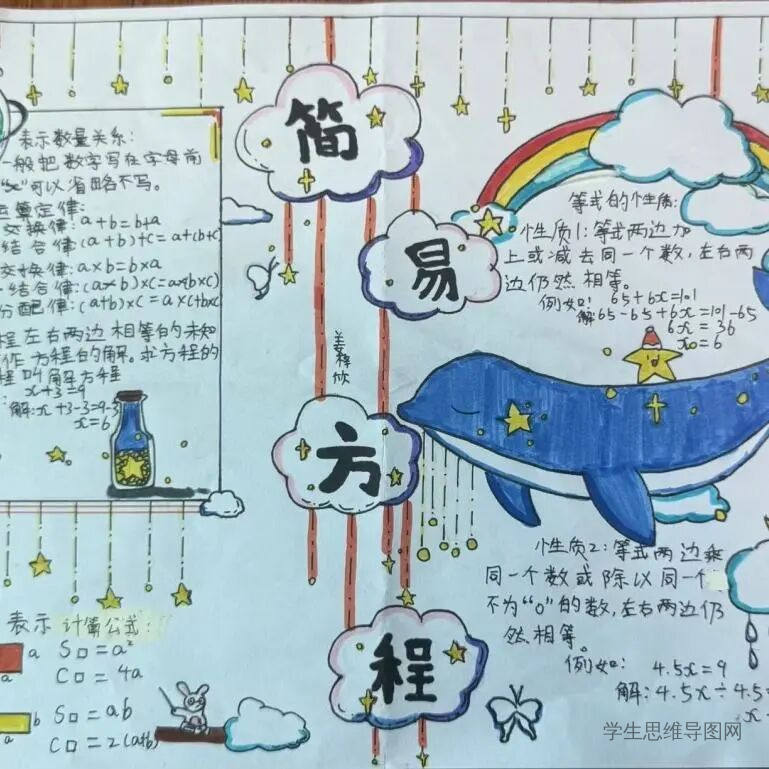 简
易
方
程
姜梓欣
表示数量关系:
一般把数字写在字母前
"x"可以省略不写。
运算定律:
交换律:a+b=b+a
结合律:(a+b)+c=a+(b+c)
交换律:a×b=b×a
结合律:(a×b)×c=a×(b×c)
分配律:(a+b)×c=a×c+b×c
程左右两边相等的未知
作方程的解。求方程的
程叫解方程
x+3=9
解:x+3-3=9-3
x=6
表示计算公式:
a
a
S□=a²
C□=4a
b
a
S□=ab
C□=2(a+b)
等式的性质:
性质1:等式两边加
上或减去同一个数,左右两
边仍然相等。
例如: 65+6x=101
解65-65+6x=101-65
6x=36
x=6
性质2:等式两边乘
同一个数或除以同一个
不为"0"的数,左右两边仍
然相等。
例如: 4.5x=9
解:4.5x÷4.5=
x=
学生思维导图网